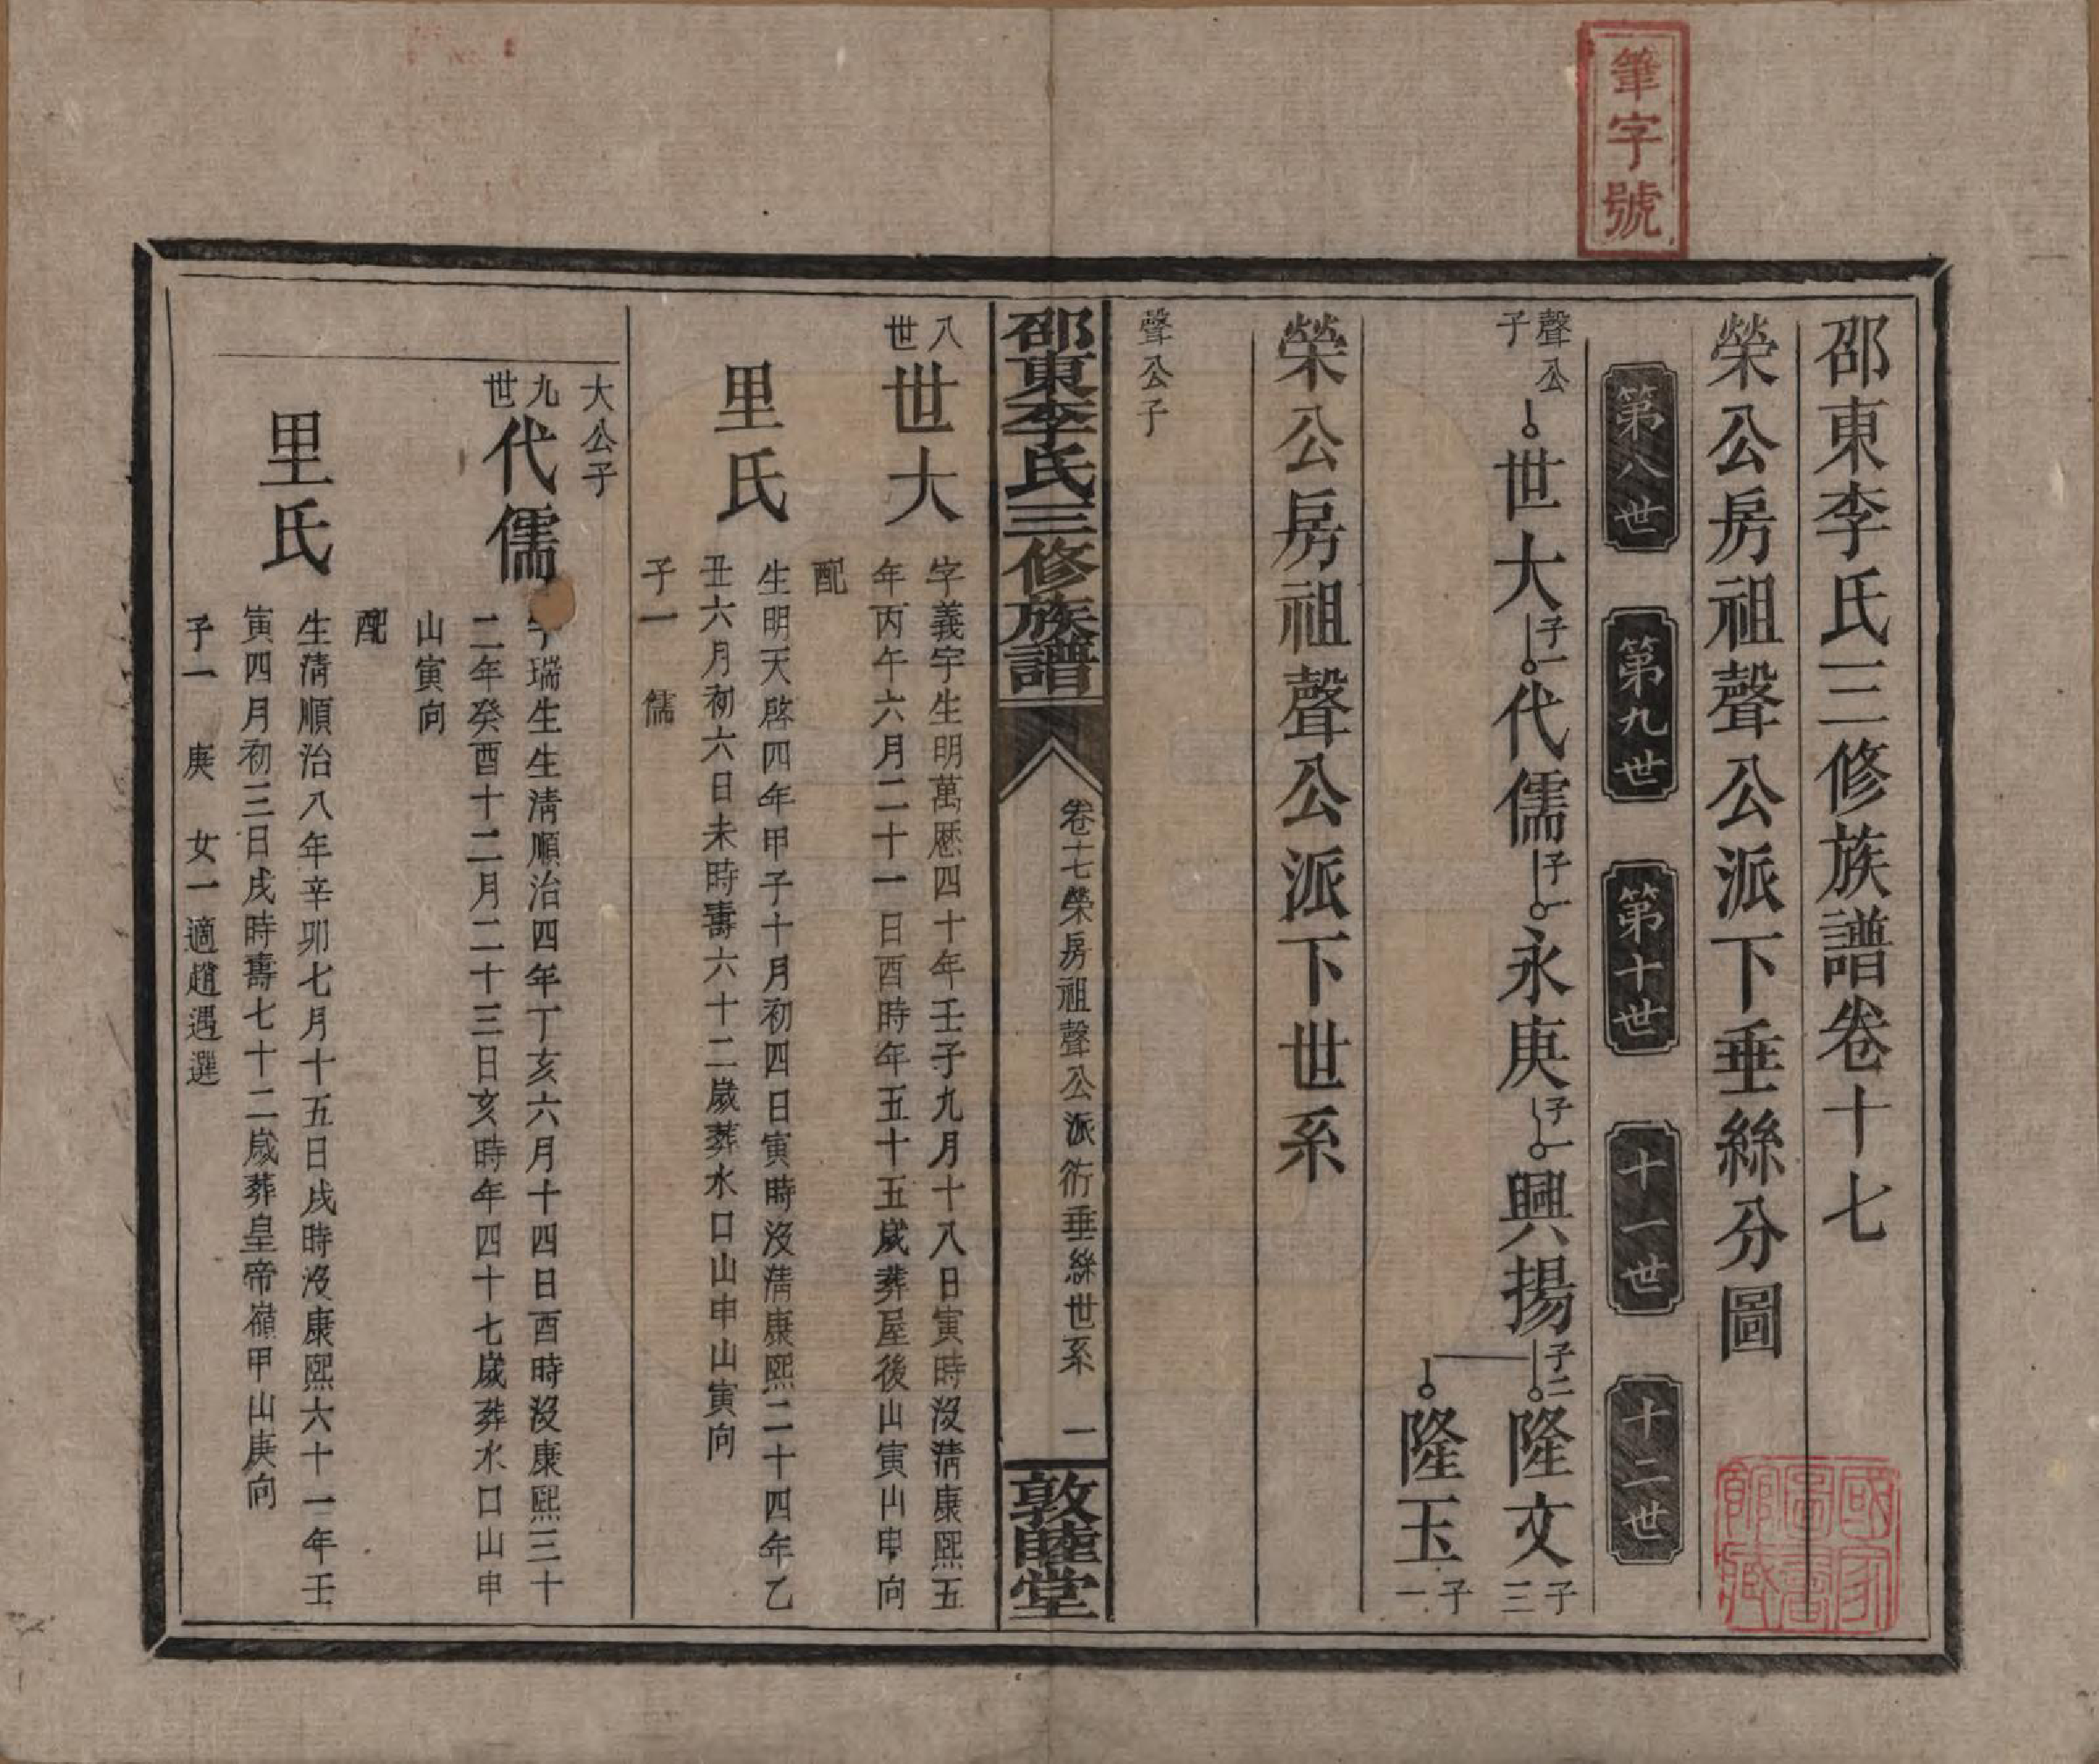 筆字號
邵東李氏三修族譜卷十七
榮公房祖聲公派下垂絲分圖
國家圖書館藏
第八世
第九世
第十世
十一世
十二世
聲公
子
世大
子一
代儒
子一
永庚
子一
興揚
子二
隆文
子三
隆玉
子一
榮公房祖聲公派下世系
聲公子
邵東李氏三修族譜
卷十七榮房祖聲公派衍垂絲世系
一
敦睦堂
八世
世大
字義宇生明萬厯四十年壬子九月十八日寅時沒清康熙五
年丙午六月二十一日酉時年五十五歲葬屋後山寅山申向
配
里氏
生明天啓四年甲子十月初四日寅時沒清康熙二十四年乙
丑六月初六日未時壽六十二歲葬水口山申山寅向
子一 儒
大公子
九世
代儒
字瑞生生清順治四年丁亥六月十四日酉時沒康熙三十
二年癸酉十二月二十三日亥時年四十七歲葬水口山申
山寅向
配
里氏
生清順治八年辛卯七月十五日戌時沒康熙六十一年壬
寅四月初三日戌時壽七十二歲葬皇帝嶺甲山庚向
子一 庚 女一適趙遇選